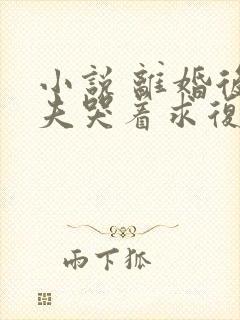 小説 離婚後
夫哭着求復
雨下狐